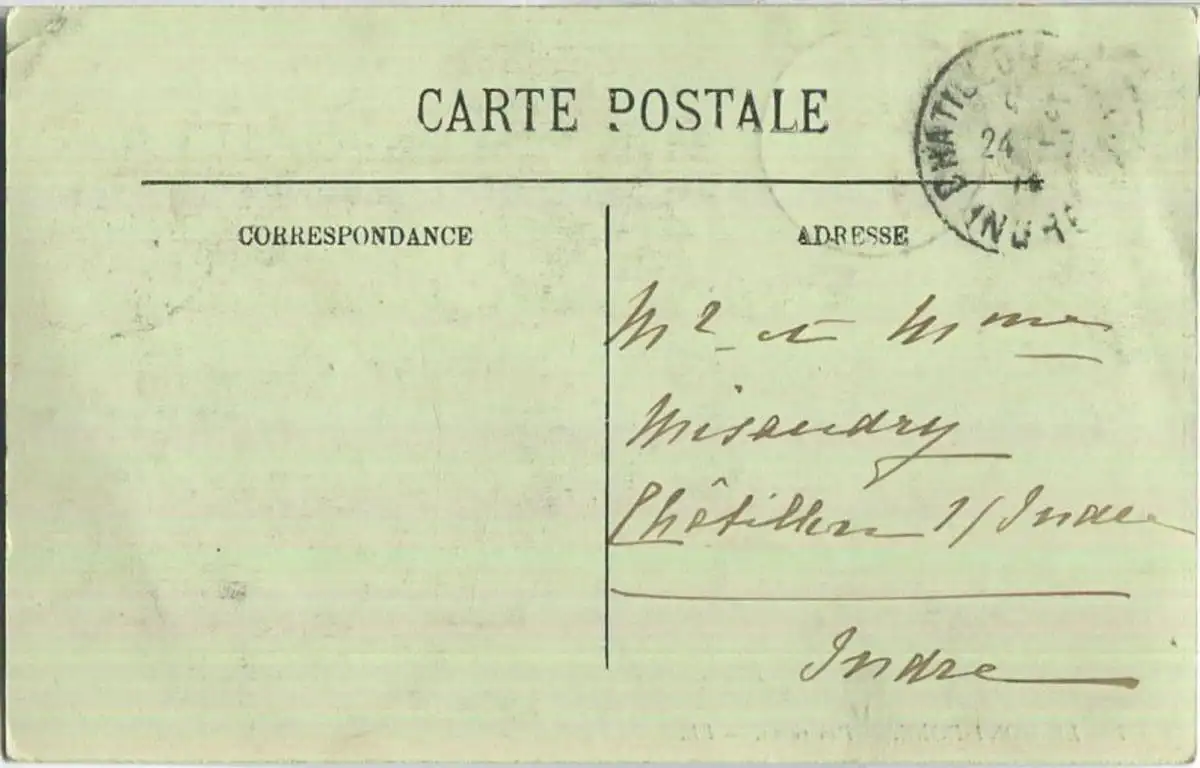 CARTE POSTALE
CHATILLON
24
INDRE
CORRESPONDANCE
ADRESSE
Mr et Mme
Misandry
Châtillon s/ Indre
Indre